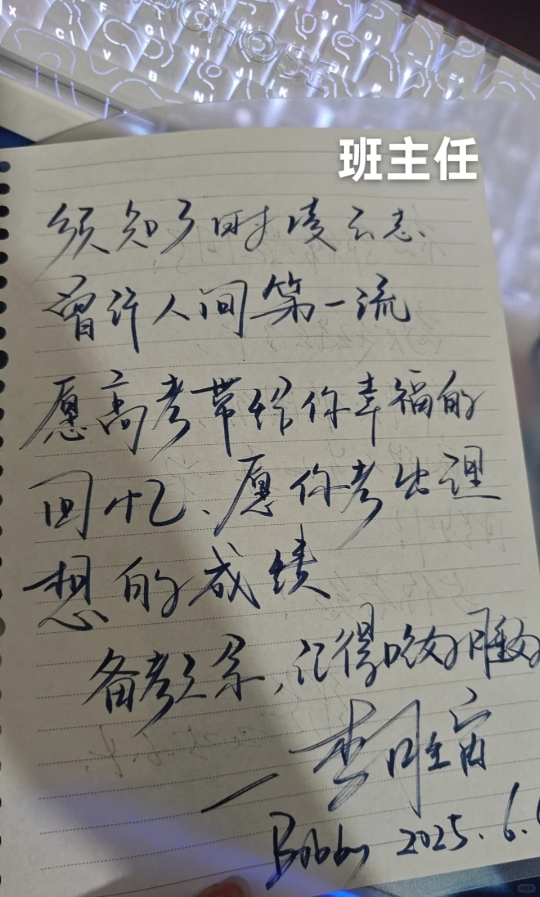 班主任
须知少时凌云志
曾许人间第一流
愿高考带给你幸福的
回忆、愿你考出理
想的成绩
备考之余,记得吃好睡好
Bobby 2025.6.